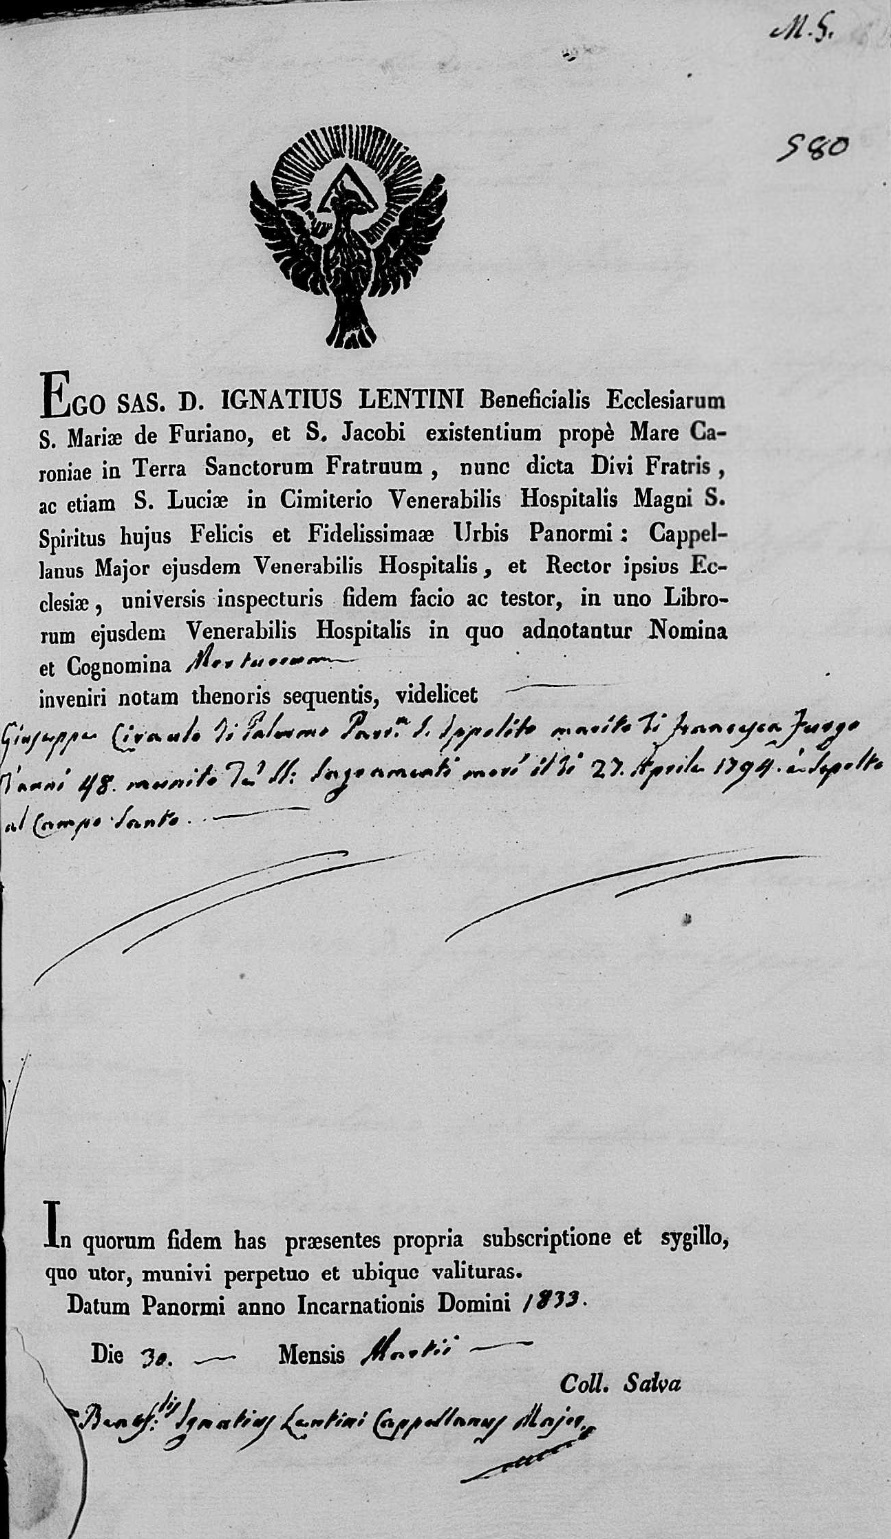 M. S.
580
EGO SAS. D. IGNATIUS LENTINI Beneficialis Ecclesiarum
S. Mariæ de Furiano, et S. Jacobi existentium propè Mare Ca-
roniae in Terra Sanctorum Fratruum, nunc dicta Divi Fratris,
ac etiam S. Luciæ in Cimiterio Venerabilis Hospitalis Magni S.
Spiritus hujus Felicis et Fidelissimaæ Urbis Panormi: Cappel-
lanus Major ejusdem Venerabilis Hospitalis, et Rector ipsius Ec-
clesiæ, universis inspecturis fidem facio ac testor, in uno Libro-
rum ejusdem Venerabilis Hospitalis in quo adnotantur Nomina
et Cognomina Mortuorum
inveniri notam thenoris sequentis, videlicet
Giuseppe Ciraulo di Palermo Parr.a S. Ippolito marito di Francesca
d'anni 48. munito de' SS: Sagramenti morì il dì 27. Aprile 1794. è sepolto
al Campo Santo.
In quorum fidem has præsentes propria subscriptione et sygillo,
quo utor, munivi perpetuo et ubique valituras.
Datum Panormi anno Incarnationis Domini 1833.
Die 30. Mensis Martii
Coll. Salva
Benef:lis Ignatius Lentini Cappellanus Major